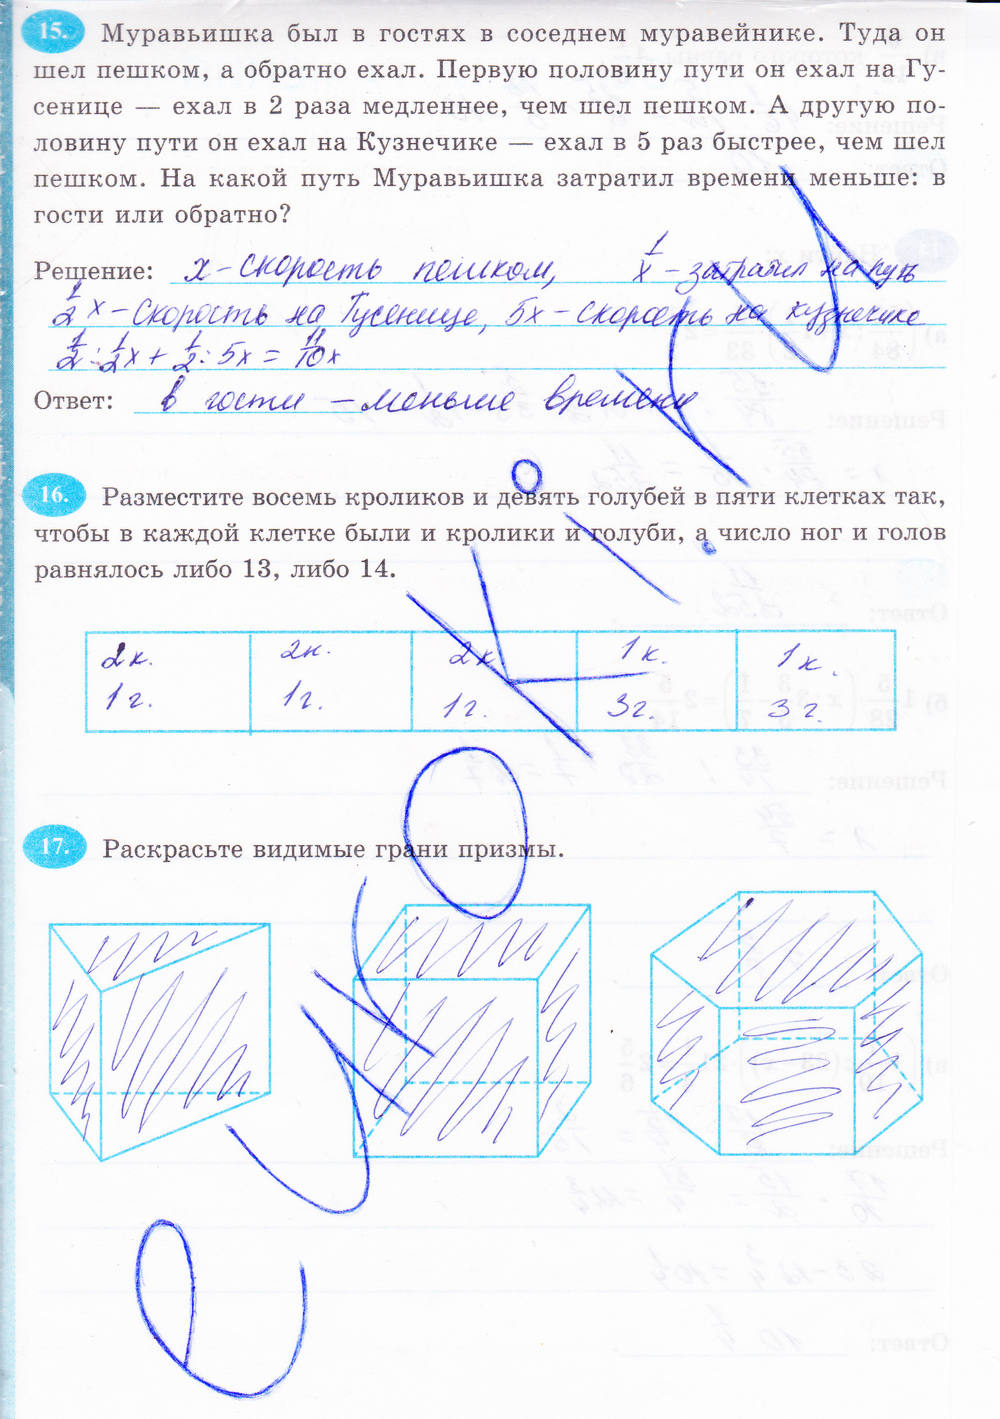 15. Муравьишка был в гостях в соседнем муравейнике. Туда он
шел пешком, а обратно ехал. Первую половину пути он ехал на Гу-
сенице — ехал в 2 раза медленнее, чем шел пешком. А другую по-
ловину пути он ехал на Кузнечике — ехал в 5 раз быстрее, чем шел
пешком. На какой путь Муравьишка затратил времени меньше: в
гости или обратно?
Решение: x – скорость пешком, 1/x – затратил на путь
1/2 x – скорость на Гусенице, 5x – скорость на кузнечике
1/2 : 1/2 x + 1/2 : 5x = 11/10x
Ответ: в гости – меньше времени
16. Разместите восемь кроликов и девять голубей в пяти клетках так,
чтобы в каждой клетке были и кролики и голуби, а число ног и голов
равнялось либо 13, либо 14.
2к. 2к. 2к. 1к. 1к.
1г. 1г. 1г. 3г. 3г.
17. Раскрасьте видимые грани призмы.
eurokі.ru